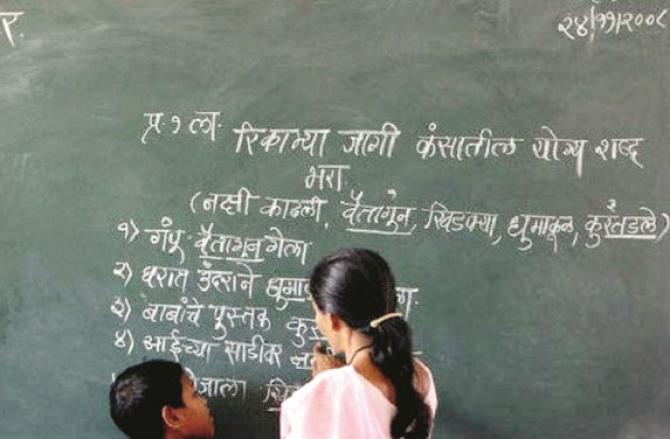 २४/११/२००८
प्र. १ ला. रिकाम्या जागी कंसातील योग्य शब्द
भरा.
(नक्षी काढली, वैतागून, खिडक्या, धुमाकूळ, कुरतडले)
१) गंपू वैतागून गेला
२) घरात उंदराने
३) बाबांचे पुस्तक
४) आईच्या साडीवर